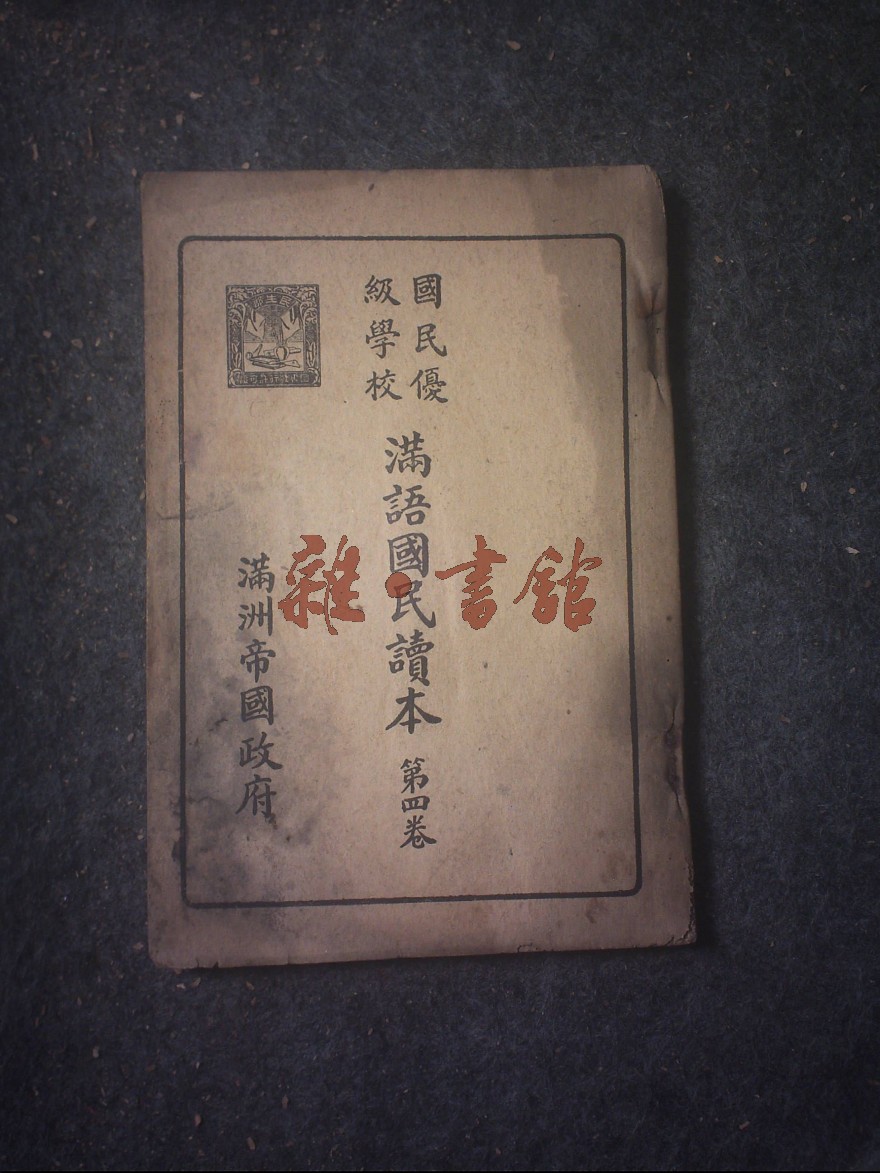 國民優
級學校
滿語國民讀本
第四卷
滿洲帝國政府
雜·書館